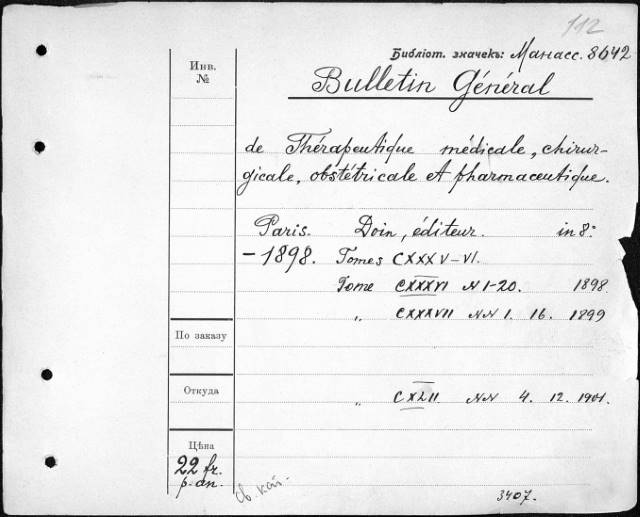 112
Библіот. значекъ: Манасс. 8642
Инв.
№
Bulletin Général
de Thérapeutique médicale, chirur-
gicale, obstétricale et pharmaceutique.
Paris. Doin, éditeur. in 8º
- 1898. Tomes CXXXV-VI.
Tome CXXXVI N 1-20. 1898
„ CXXXVII NN 1. 16. 1899
По заказу
Откуда
„ CXLII. NN 4. 12. 1901.
Цѣна
22 fr.
p. an.
св. кат.
3407.